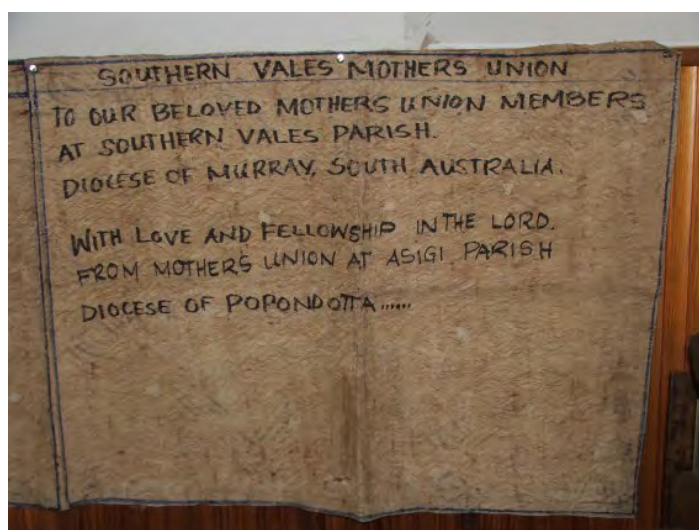 SOUTHERN VALES MOTHERS UNION
TO OUR BELOVED MOTHERS UNION MEMBERS
AT SOUTHERN VALES PARISH.
DIOCESE OF MURRAY, SOUTH AUSTRALIA.
WITH LOVE AND FELLOWSHIP IN THE LORD.
FROM MOTHERS UNION AT ASIGI PARISH
DIOCESE OF POPONDOTTA......